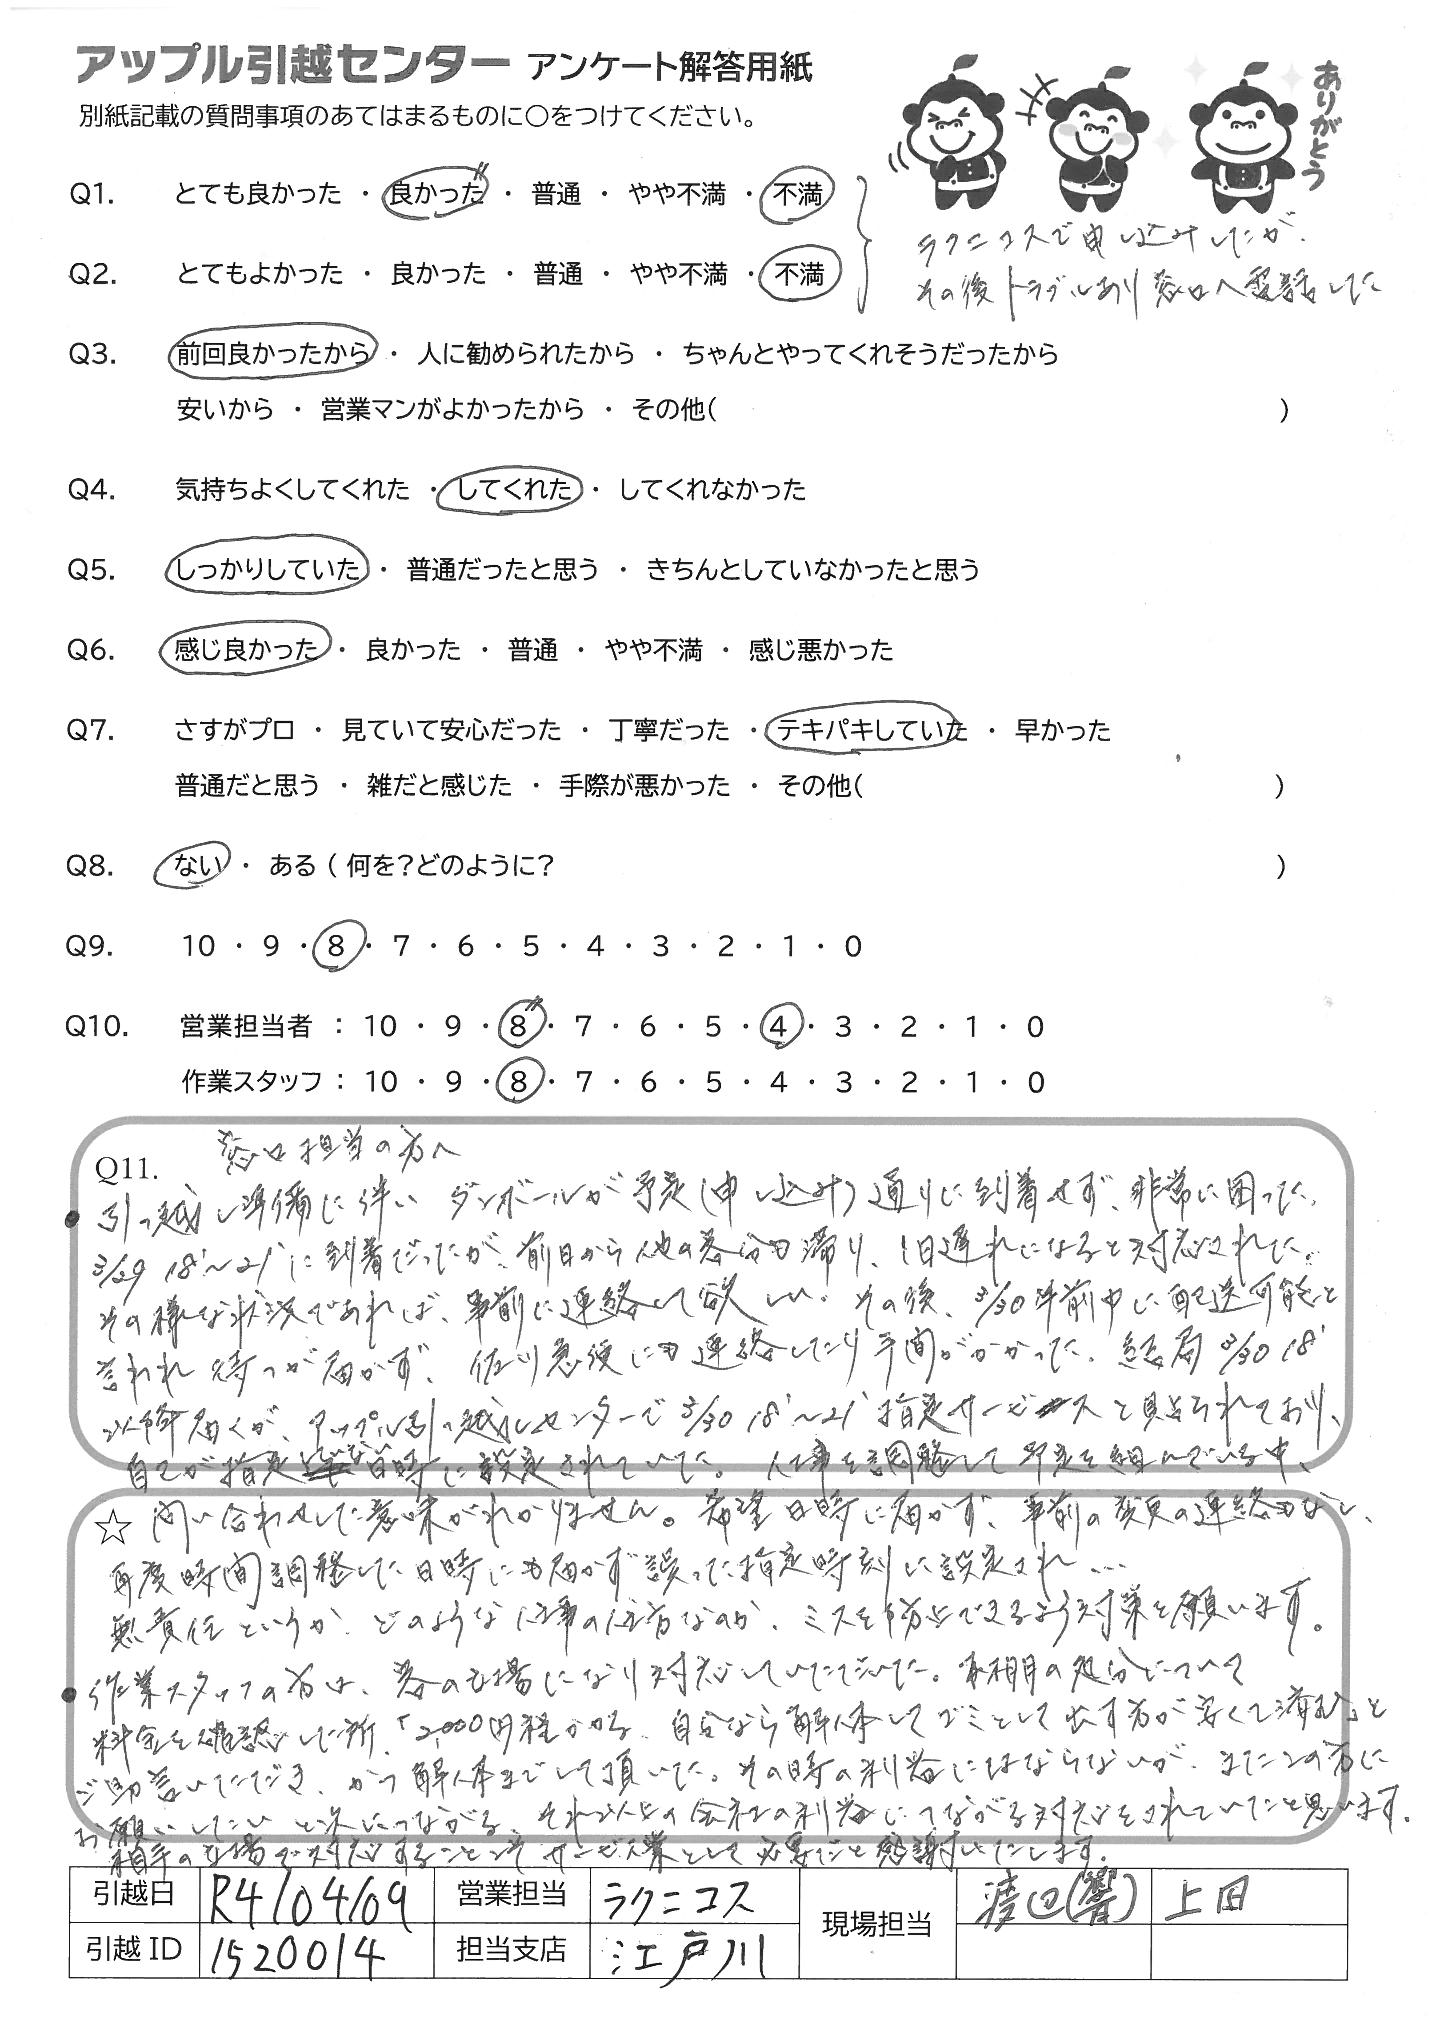 アップル引越センター アンケート解答用紙
ありがとう
別紙記載の質問事項のあてはまるものに〇をつけてください。
Q1. とても良かった ・ 良かった ・ 普通 ・ やや不満 ・ 不満
Q2. とてもよかった ・ 良かった ・ 普通 ・ やや不満 ・ 不満
ラクニコスで申し込みしたが、
その後トラブルあり窓口へ電話した
Q3. 前回良かったから ・ 人に勧められたから ・ ちゃんとやってくれそうだったから
安いから ・ 営業マンがよかったから ・ その他( )
Q4. 気持ちよくしてくれた ・ してくれた ・ してくれなかった
Q5. しっかりしていた ・ 普通だったと思う ・ きちんとしていなかったと思う
Q6. 感じ良かった ・ 良かった ・ 普通 ・ やや不満 ・ 感じ悪かった
Q7. さすがプロ ・ 見ていて安心だった ・ 丁寧だった ・ テキパキしていた ・ 早かった
普通だと思う ・ 雑だと感じた ・ 手際が悪かった ・ その他( )
Q8. ない ・ ある ( 何を?どのように? )
Q9. 10 ・ 9 ・ 8 ・ 7 ・ 6 ・ 5 ・ 4 ・ 3 ・ 2 ・ 1 ・ 0
Q10. 営業担当者 : 10 ・ 9 ・ 8 ・ 7 ・ 6 ・ 5 ・ 4 ・ 3 ・ 2 ・ 1 ・ 0
作業スタッフ : 10 ・ 9 ・ 8 ・ 7 ・ 6 ・ 5 ・ 4 ・ 3 ・ 2 ・ 1 ・ 0
Q11. 窓口担当の方へ
● 引っ越し準備に伴い ダンボールが予定(申し込み)通りに到着せず、非常に困った。
3/29 18'〜21'に到着だったが、前日から他の客分も滞り、1日遅れになると対応された。
その様な状況であれば、事前に連絡して欲しい。その後、3/30午前中に配送可能と
言われ待つが届かず、佐川急便にも連絡したり手間がかかった。結局 3/30 18'
以降届くが、アップル引っ越しセンターで 3/30 18'〜21' 指定サービスと貼られており、
自己が指定でない日時に設定されていた。仕事を調整して予定を組んでいる中、
☆ 問い合わせした意味がわかりません。希望日時に届かず、事前の変更の連絡もなし、
再度時間調整した日時にも届かず誤った指定時刻に設定され…
無責任というか、どのような仕事の仕方なのか、ミスを防止できるよう対策を願います。
● 作業スタッフの方は、客の立場になり対応していただいた。本棚の処分について
料金を確認した所、「2,000円程かかる、自分なら解体してゴミとして出す方が安くて済む」と
ご助言いただき、かつ解体までして頂いた。その時の利益にはならないが、またこの方に
お願いしたいと次につながる、それ以上の会社の利益につながる対応をされていたと思います。
相手の立場で対応することこそサービス業として必要だと感謝いたします。
引越日 R4/04/09 営業担当 ラクニコス 現場担当 渡辺(響) 上田
引越ID 1520014 担当支店 江戸川